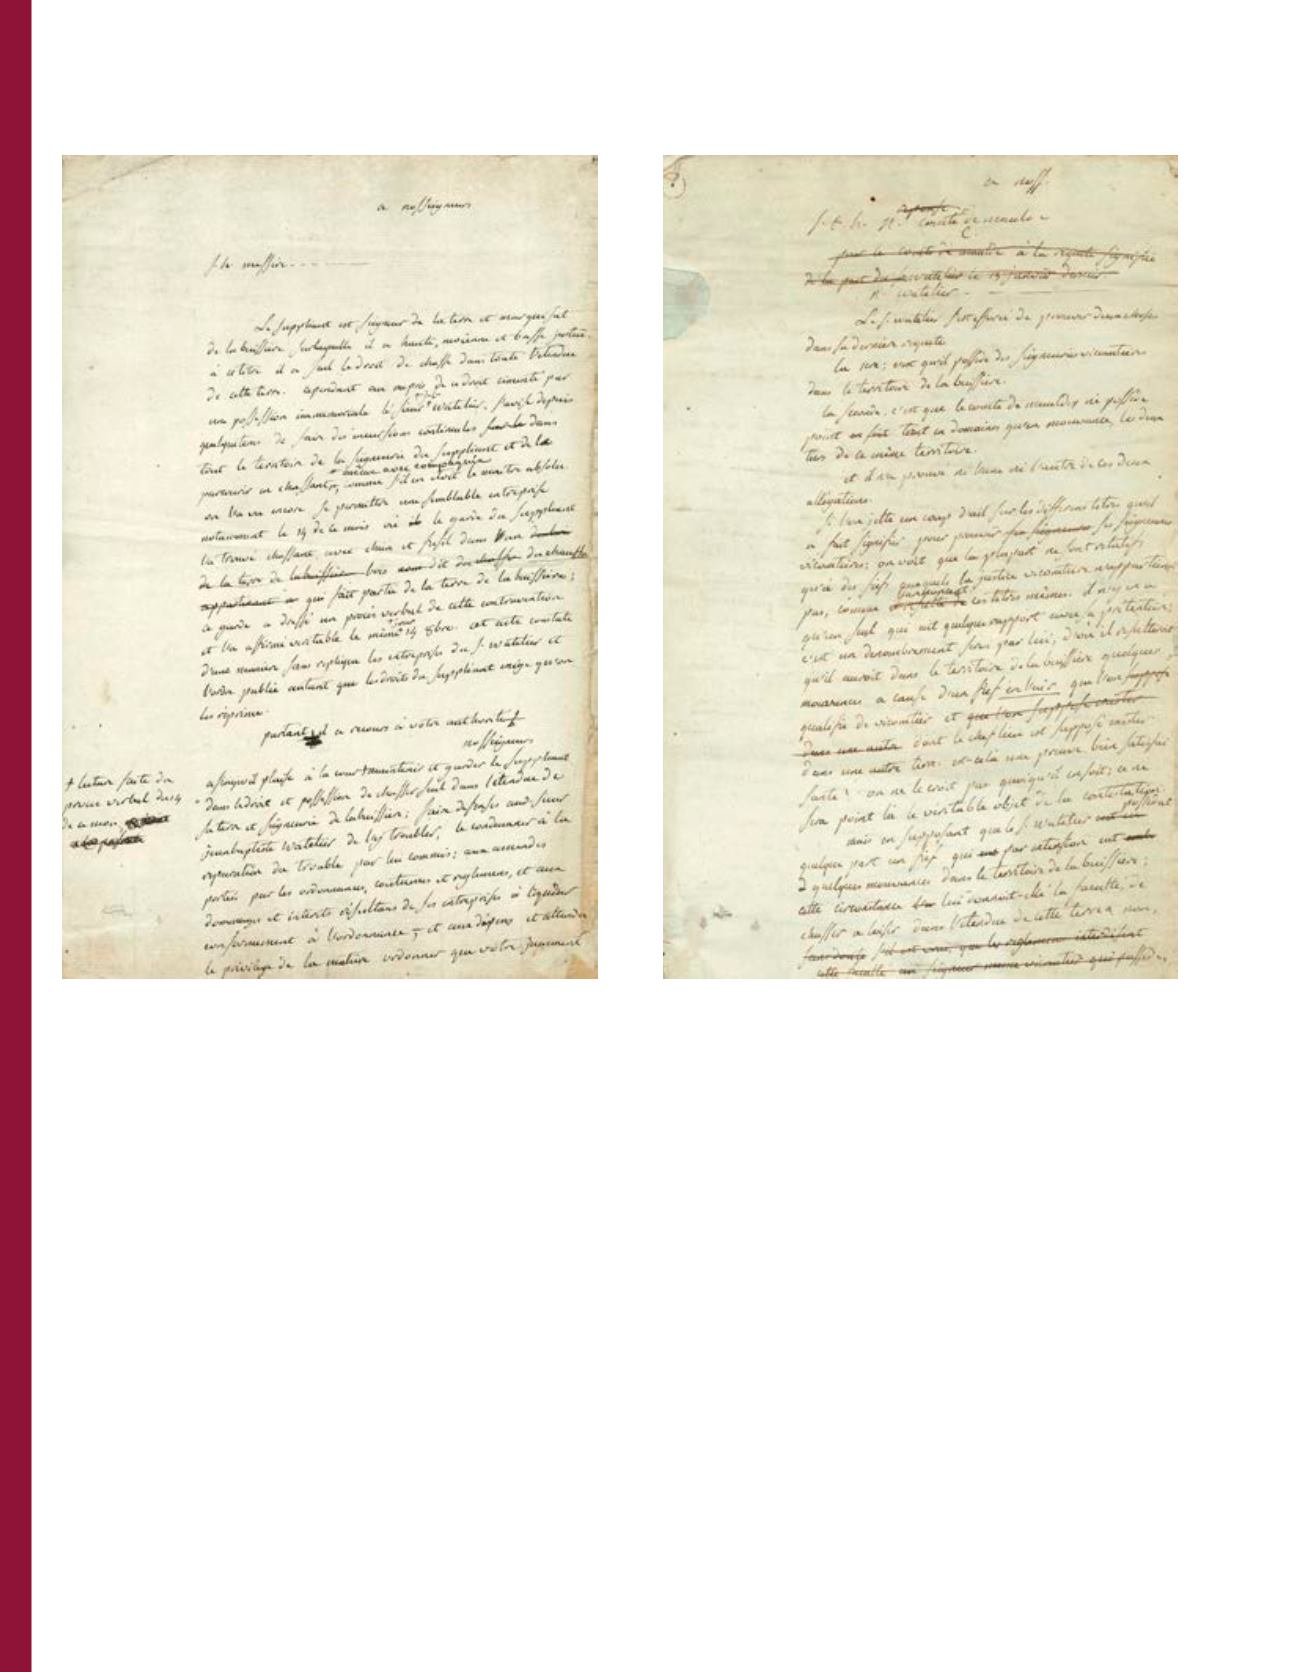 a nosseigneurs
s. h. messire
Le suppliant est seigneur de la terre et marquisat
de la buissiere sur laquelle il a haute, moienne et basse justice.
à ce titre il a seul le droit de chasse dans toute l'etendue
de cette terre. cependant au mepris de ce droit cimenté par
une possession immemoriale le sieur watelier s'avise depuis
quelquetems de faire des incursions continuelles sur le dans
tout le territoire de la seigneurie du suppliant et de le
parcourir en chassant, comme s'il en etoit le maitre absolu.
on l'a vu encore se permettre une semblable entreprise
notamment le 14 de ce mois où le garde du suppliant
l'a trouvé chassant avec chien et fusil dans un
de la terre de labuissiere bois dit du
appartenant à qui fait partie de la terre de la buissiere;
ce garde a dressé un procès verbal de cette contravention
et l'a affirmé veritable le même jour 14 8bre. cet acte constate
d'une maniere sans replique les entreprises du s. watelier et
l'ordre public autant que les droits du suppliant exige qu'on
les réprime.
partant il a recours à votre authorité +
nosseigneurs
+ lecture faite du
procès verbal du 14
de ce mois
a ce qu'il plaise à la cour maintenir et garder le suppliant
dans le droit et possession de chasser seul dans l'etendue de
sa terre et seigneurie de labuissiere; faire defenses aud. sieur
jeanbaptiste watelier de l'y troubler, le condamner à la
reparation du trouble par lui commis; aux amendes
portées par les ordonnances, coutumes et reglemens, et aux
dommages et interets résultans de ses entreprises à liquider
conformement à l'ordonnance; et aux dépens et attendu
le privilege de la matiere ordonner que votre jugement
a noss.
reponse
comte de
pour le comte de à la requete signifiée
de la part du s. watelier le 15 janvier dernier
watelier
Le s. watelier s'est efforcé de prouver deux choses
dans sa derniere requete
la 1ere; est qu'il possede des seigneuries vicomtieres
dans le territoire de la buissiere.
la seconde, c'est que le comte de ne possede
point en fait tant en domaines qu'en mouvance, les deux
tiers de ce même territoire.
et il n'a prouvé ni l'une ni l'autre de ces deux
allégations.
Si l'on jette un coup d'œil sur les differens titres qu'il
a fait signifier pour prouver ses seigneuries ses seigneuries
vicomtieres; on voit que la plupart ne sont relatifs
qu'à des fiefs auxquels la justice vicomtiere n'appartient
pas, comme ces titres mêmes. il n'y en a
qu'un seul qui ait quelque rapport avec sa pretention;
c'est un denombrement servi par lui, d'où il resulteroit
qu'il auroit dans le territoire de la buissière quelques
mouvances a cause d'un fief en l'air que l'on suppose
qualifié de vicomtier et que l'on suppose exister
dans une autre dont le chef lieu est supposé exister
dans une autre terre. est-cela une preuve bien satisfai-
sante? on ne le croit pas quoiqu'il en soit; ce ne
sera point là le veritable objet de la contestation.
mais en supposant que le s. watelier possedat
quelque part un fief, qui par extension eut
quelques mouvances dans le territoire de la buissiere;
cette circonstance lui donnoit-elle la faculté de
chasser a loisir dans l'etendue de cette terre? non,
sans doute s'il est vrai que les reglemens interdisent
cette faculté au seigneur meme vicomtier qui possede